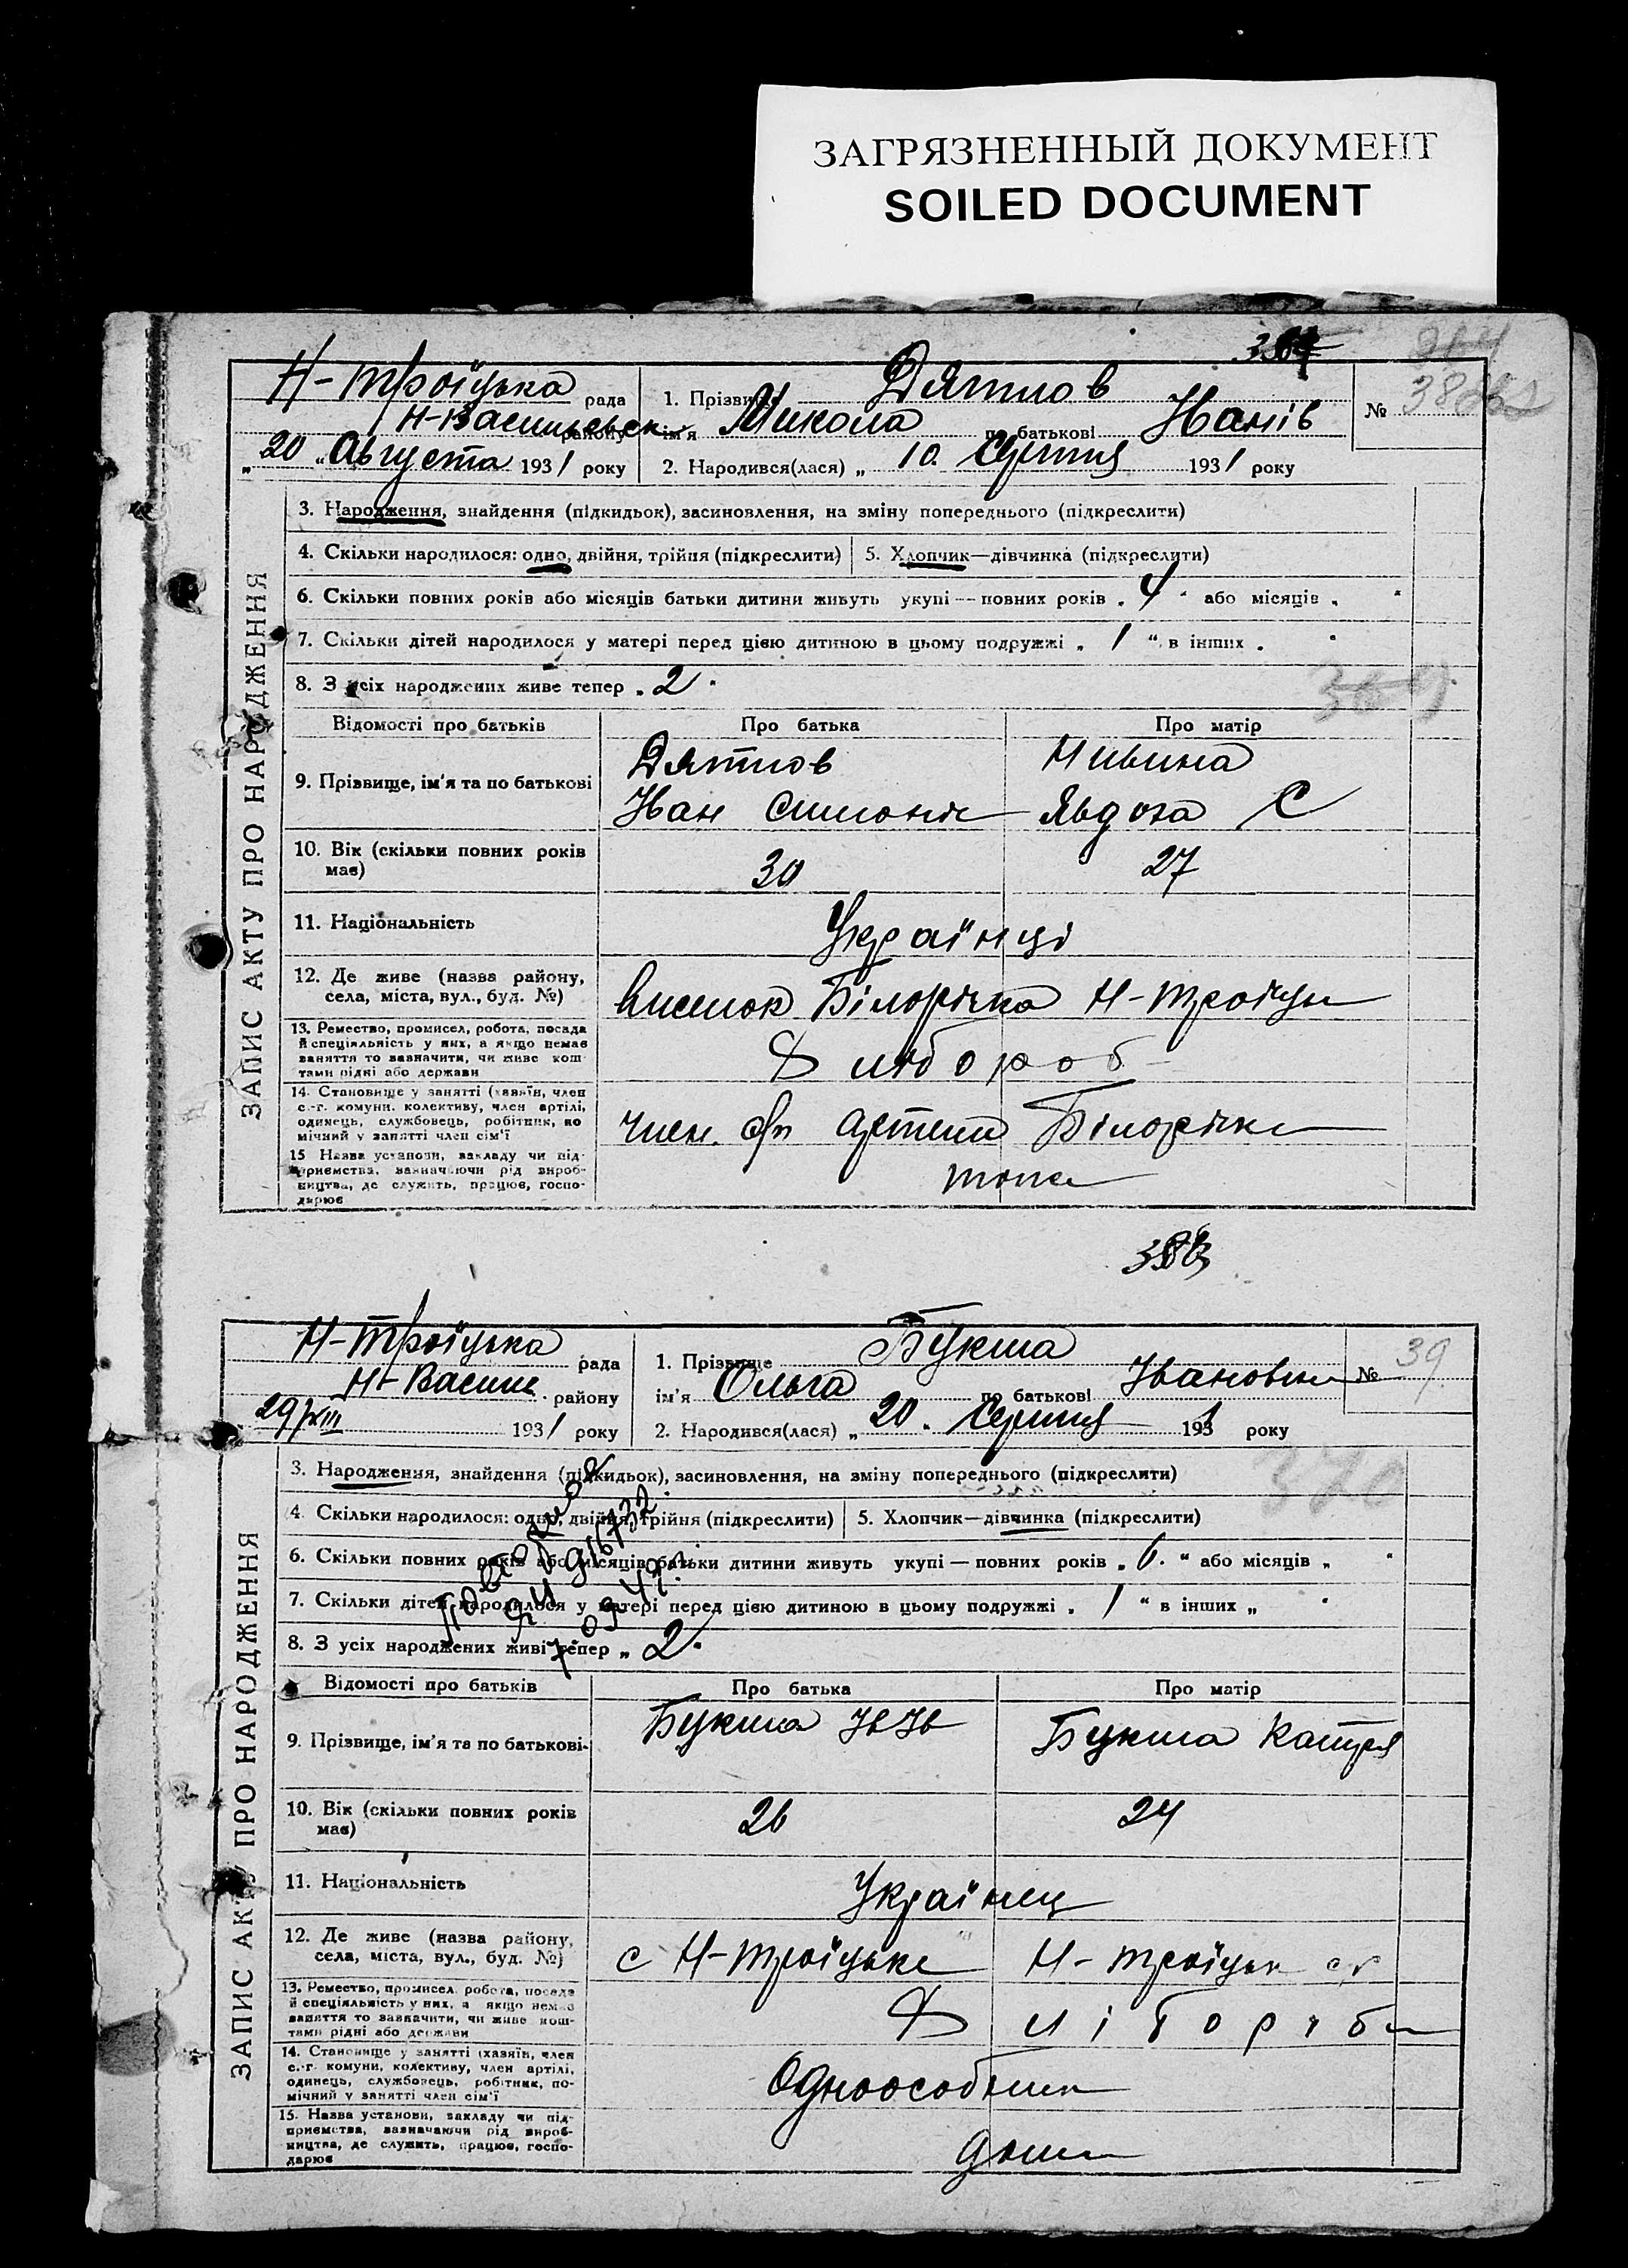 ЗАГРЯЗНЕННЫЙ ДОКУМЕНТ
SOILED DOCUMENT
Н-Троїцька рада
Н-Васильевськ району
„20" Августа 1931 року
1. Прізвище Дятлов
ім'я Микола по батькові Іванів
2. Народився(лася) „10. Серпня 1931 року
№
ЗАПИС АКТУ ПРО НАРОДЖЕННЯ
3. Народження, знайдення (підкидьок), засиновлення, на зміну попереднього (підкреслити)
4. Скільки народилося: одно, двійня, трійня (підкреслити) 5. Хлопчик—дівчинка (підкреслити)
6. Скільки повних років або місяців батьки дитини живуть укупі — повних років „4" або місяців „ "
7. Скільки дітей народилося у матері перед цією дитиною в цьому подружжі „1" в інших „ "
8. З усіх народжених живе тепер „2"
Відомості про батьків Про батька Про матір
9. Прізвище, ім'я та по батькові
Дятлов
Іван
Явдоха С
10. Вік (скільки повних років має) 30 27
11. Національність Українці
12. Де живе (назва району, села, міста, вул., буд. №)
висилок Білорічка Н-Троїцьк
13. Ремество, промисел, робота, посада й спеціяльність у них, а якщо немає заняття то зазначити, чи живе коштами рідні або держави
Хлібороб
14. Становище у занятті (хазяїн, член с.-г. комуни, колективу, член артілі, одинець, службовець, робітник, помічний у занятті член сім'ї
член с/г артели Білорічка
15 Назва установи, закладу чи підприємства, зазначаючи рід виробництва, де служить, працює, господарює
Н-Троїцька рада
Н-Васил району
29/VIII 1931 року
1. Прізвище Букша
ім'я Ольга по батькові Івановна
2. Народився(лася) „20. Серпня 1931 року
№ 39
370
ЗАПИС АКТУ ПРО НАРОДЖЕННЯ
3. Народження, знайдення (підкидьок), засиновлення, на зміну попереднього (підкреслити)
4. Скільки народилося: одно, двійня, трійня (підкреслити) 5. Хлопчик—дівчинка (підкреслити)
6. Скільки повних років або місяців батьки дитини живуть укупі — повних років „6." або місяців „ "
7. Скільки дітей народилося у матері перед цією дитиною в цьому подружжі „1" в інших „ "
8. З усіх народжених живі тепер „2."
Відомості про батьків Про батька Про матір
9. Прізвище, ім'я та по батькові
Букша Ів Ів Букша Катря
10. Вік (скільки повних років має) 26 24
11. Національність Українец
12. Де живе (назва району, села, міста, вул., буд. №)
с Н-Троїцьке Н-Троїцьк
13. Ремество, промисел, робота, посада й спеціяльність у них, а якщо немає заняття то зазначити, чи живе коштами рідні або держави
Хліборіб
14. Становище у занятті (хазяїн, член с.-г. комуни, колективу, член артілі, одинець, службовець, робітник, помічний у занятті член сім'ї
Одноособник
15. Назва установи, закладу чи підприємства, зазначаючи рід виробництва, де служить, працює, господарює
дома